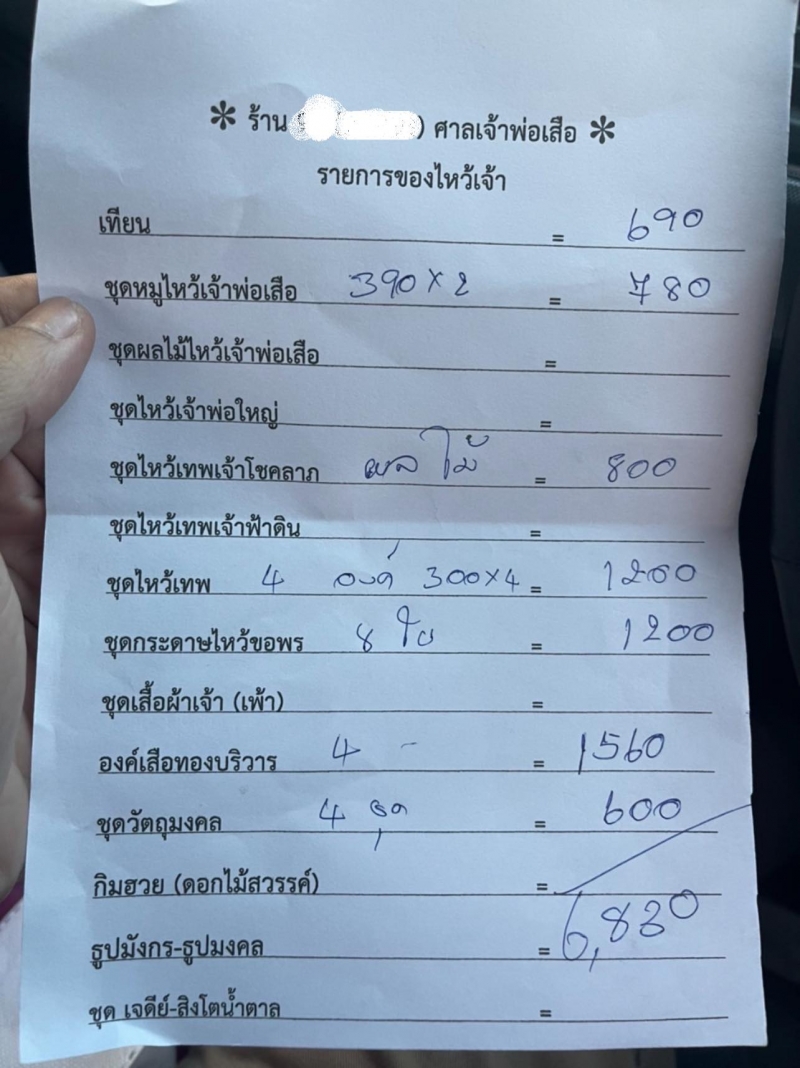 * ร้าน ) ศาลเจ้าพ่อเสือ *
รายการของไหว้เจ้า
เทียน = 690
ชุดหมูไหว้เจ้าพ่อเสือ 390 x 2 = 780
ชุดผลไม้ไหว้เจ้าพ่อเสือ =
ชุดไหว้เจ้าพ่อใหญ่ =
ชุดไหว้เทพเจ้าโชคลาภ ผลไม้ = 800
ชุดไหว้เทพเจ้าฟ้าดิน =
ชุดไหว้เทพ 4 องค์ 300x4 = 1200
ชุดกระดาษไหว้ขอพร 8 ใบ = 1200
ชุดเสื้อผ้าเจ้า (เพ้า) =
องค์เสือทองบริวาร 4 - = 1560
ชุดวัตถุมงคล 4 ชุด = 600
กิมฮวย (ดอกไม้สวรรค์) =
ธูปมังกร-ธูปมงคล = 6,830
ชุด เจดีย์-สิงโตน้ำตาล =